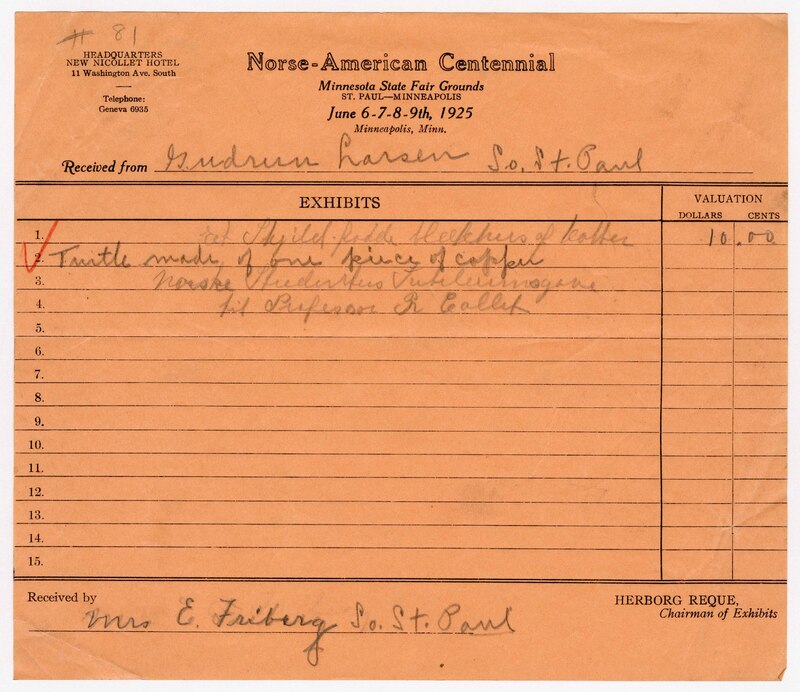 # 81
HEADQUARTERS
NEW NICOLLET HOTEL
11 Washington Ave. South
Telephone:
Geneva 6935
Norse-American Centennial
Minnesota State Fair Grounds
ST. PAUL—MINNEAPOLIS
June 6-7-8-9th, 1925
Minneapolis, Minn.
Received from Gudrun Larsen So. St. Paul
EXHIBITS
VALUATION
DOLLARS CENTS
1. et af kobber 10.00
2. Turtle made of one piece of copper
3. Norske Jubileumsgave
4. til Professor R Collet
5.
6.
7.
8.
9.
10.
11.
12.
13.
14.
15.
Received by Mrs E. Friberg So. St. Paul
HERBORG REQUE,
Chairman of Exhibits